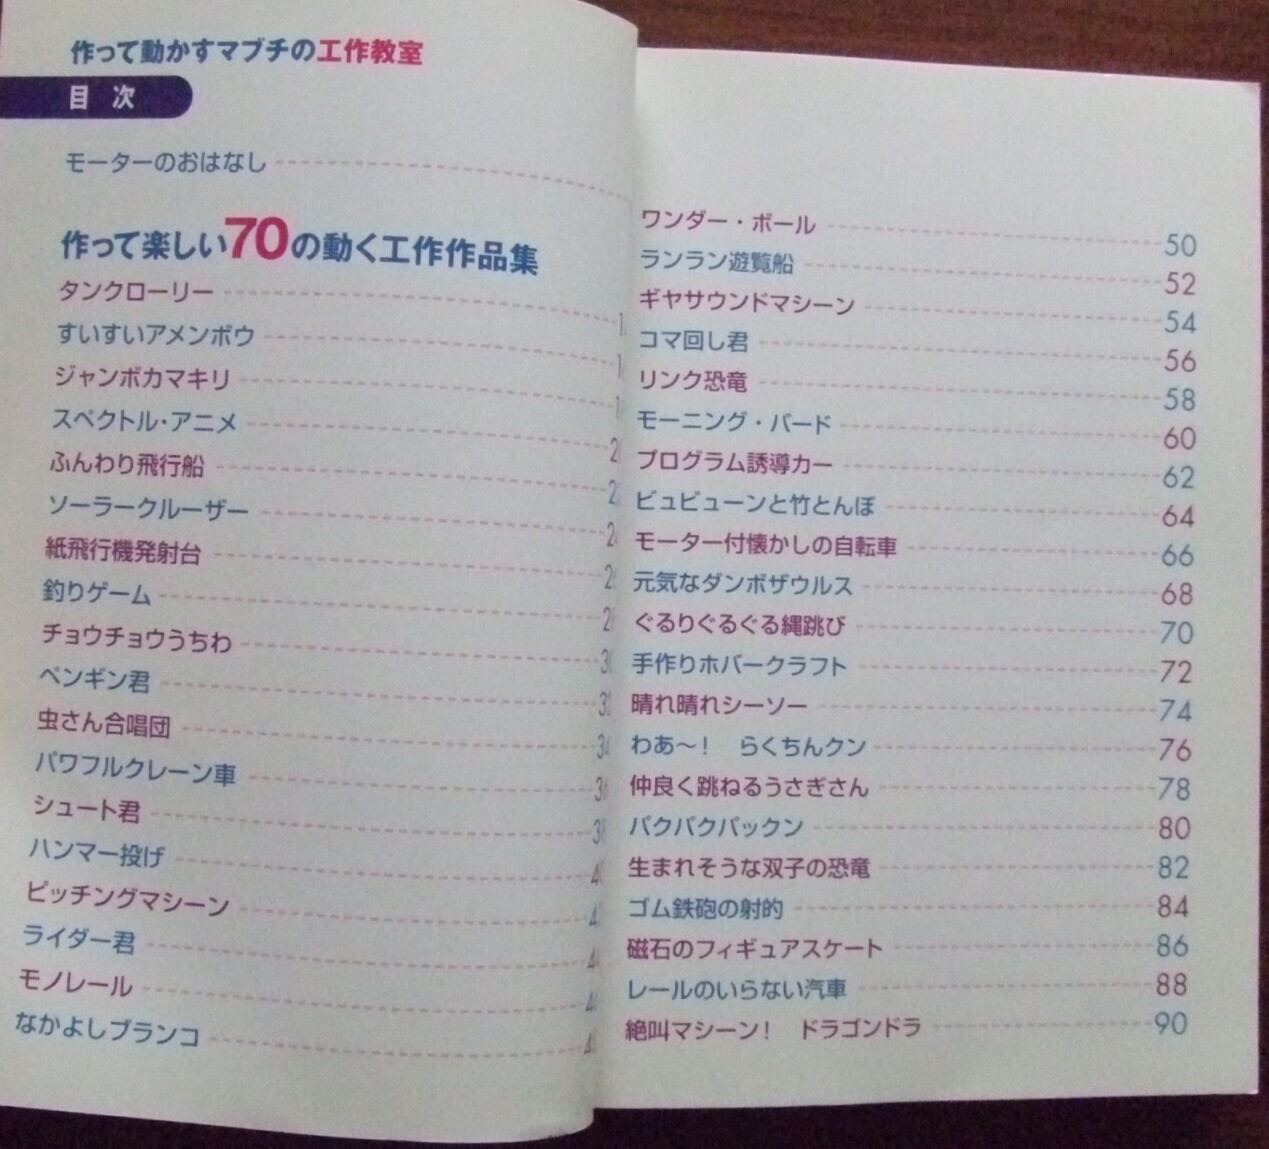 作って動かすマブチの工作教室
目 次
モーターのおはなし
作って楽しい70の動く工作作品集
タンクローリー
すいすいアメンボウ
ジャンボカマキリ
スペクトル・アニメ
ふんわり飛行船
ソーラークルーザー
紙飛行機発射台
釣りゲーム
チョウチョウうちわ
ペンギン君
虫さん合唱団
パワフルクレーン車
シュート君
ハンマー投げ
ピッチングマシーン
ライダー君
モノレール
なかよしブランコ
ワンダー・ボール 50
ランラン遊覧船 52
ギヤサウンドマシーン 54
コマ回し君 56
リンク恐竜 58
モーニング・バード 60
プログラム誘導カー 62
ビュビューンと竹とんぼ 64
モーター付懐かしの自転車 66
元気なダンボザウルス 68
ぐるりぐるぐる縄跳び 70
手作りホバークラフト 72
晴れ晴れシーソー 74
わあ〜! らくちんクン 76
仲良く跳ねるうさぎさん 78
パクパクパックン 80
生まれそうな双子の恐竜 82
ゴム鉄砲の射的 84
磁石のフィギュアスケート 86
レールのいらない汽車 88
絶叫マシーン! ドラゴンドラ 90